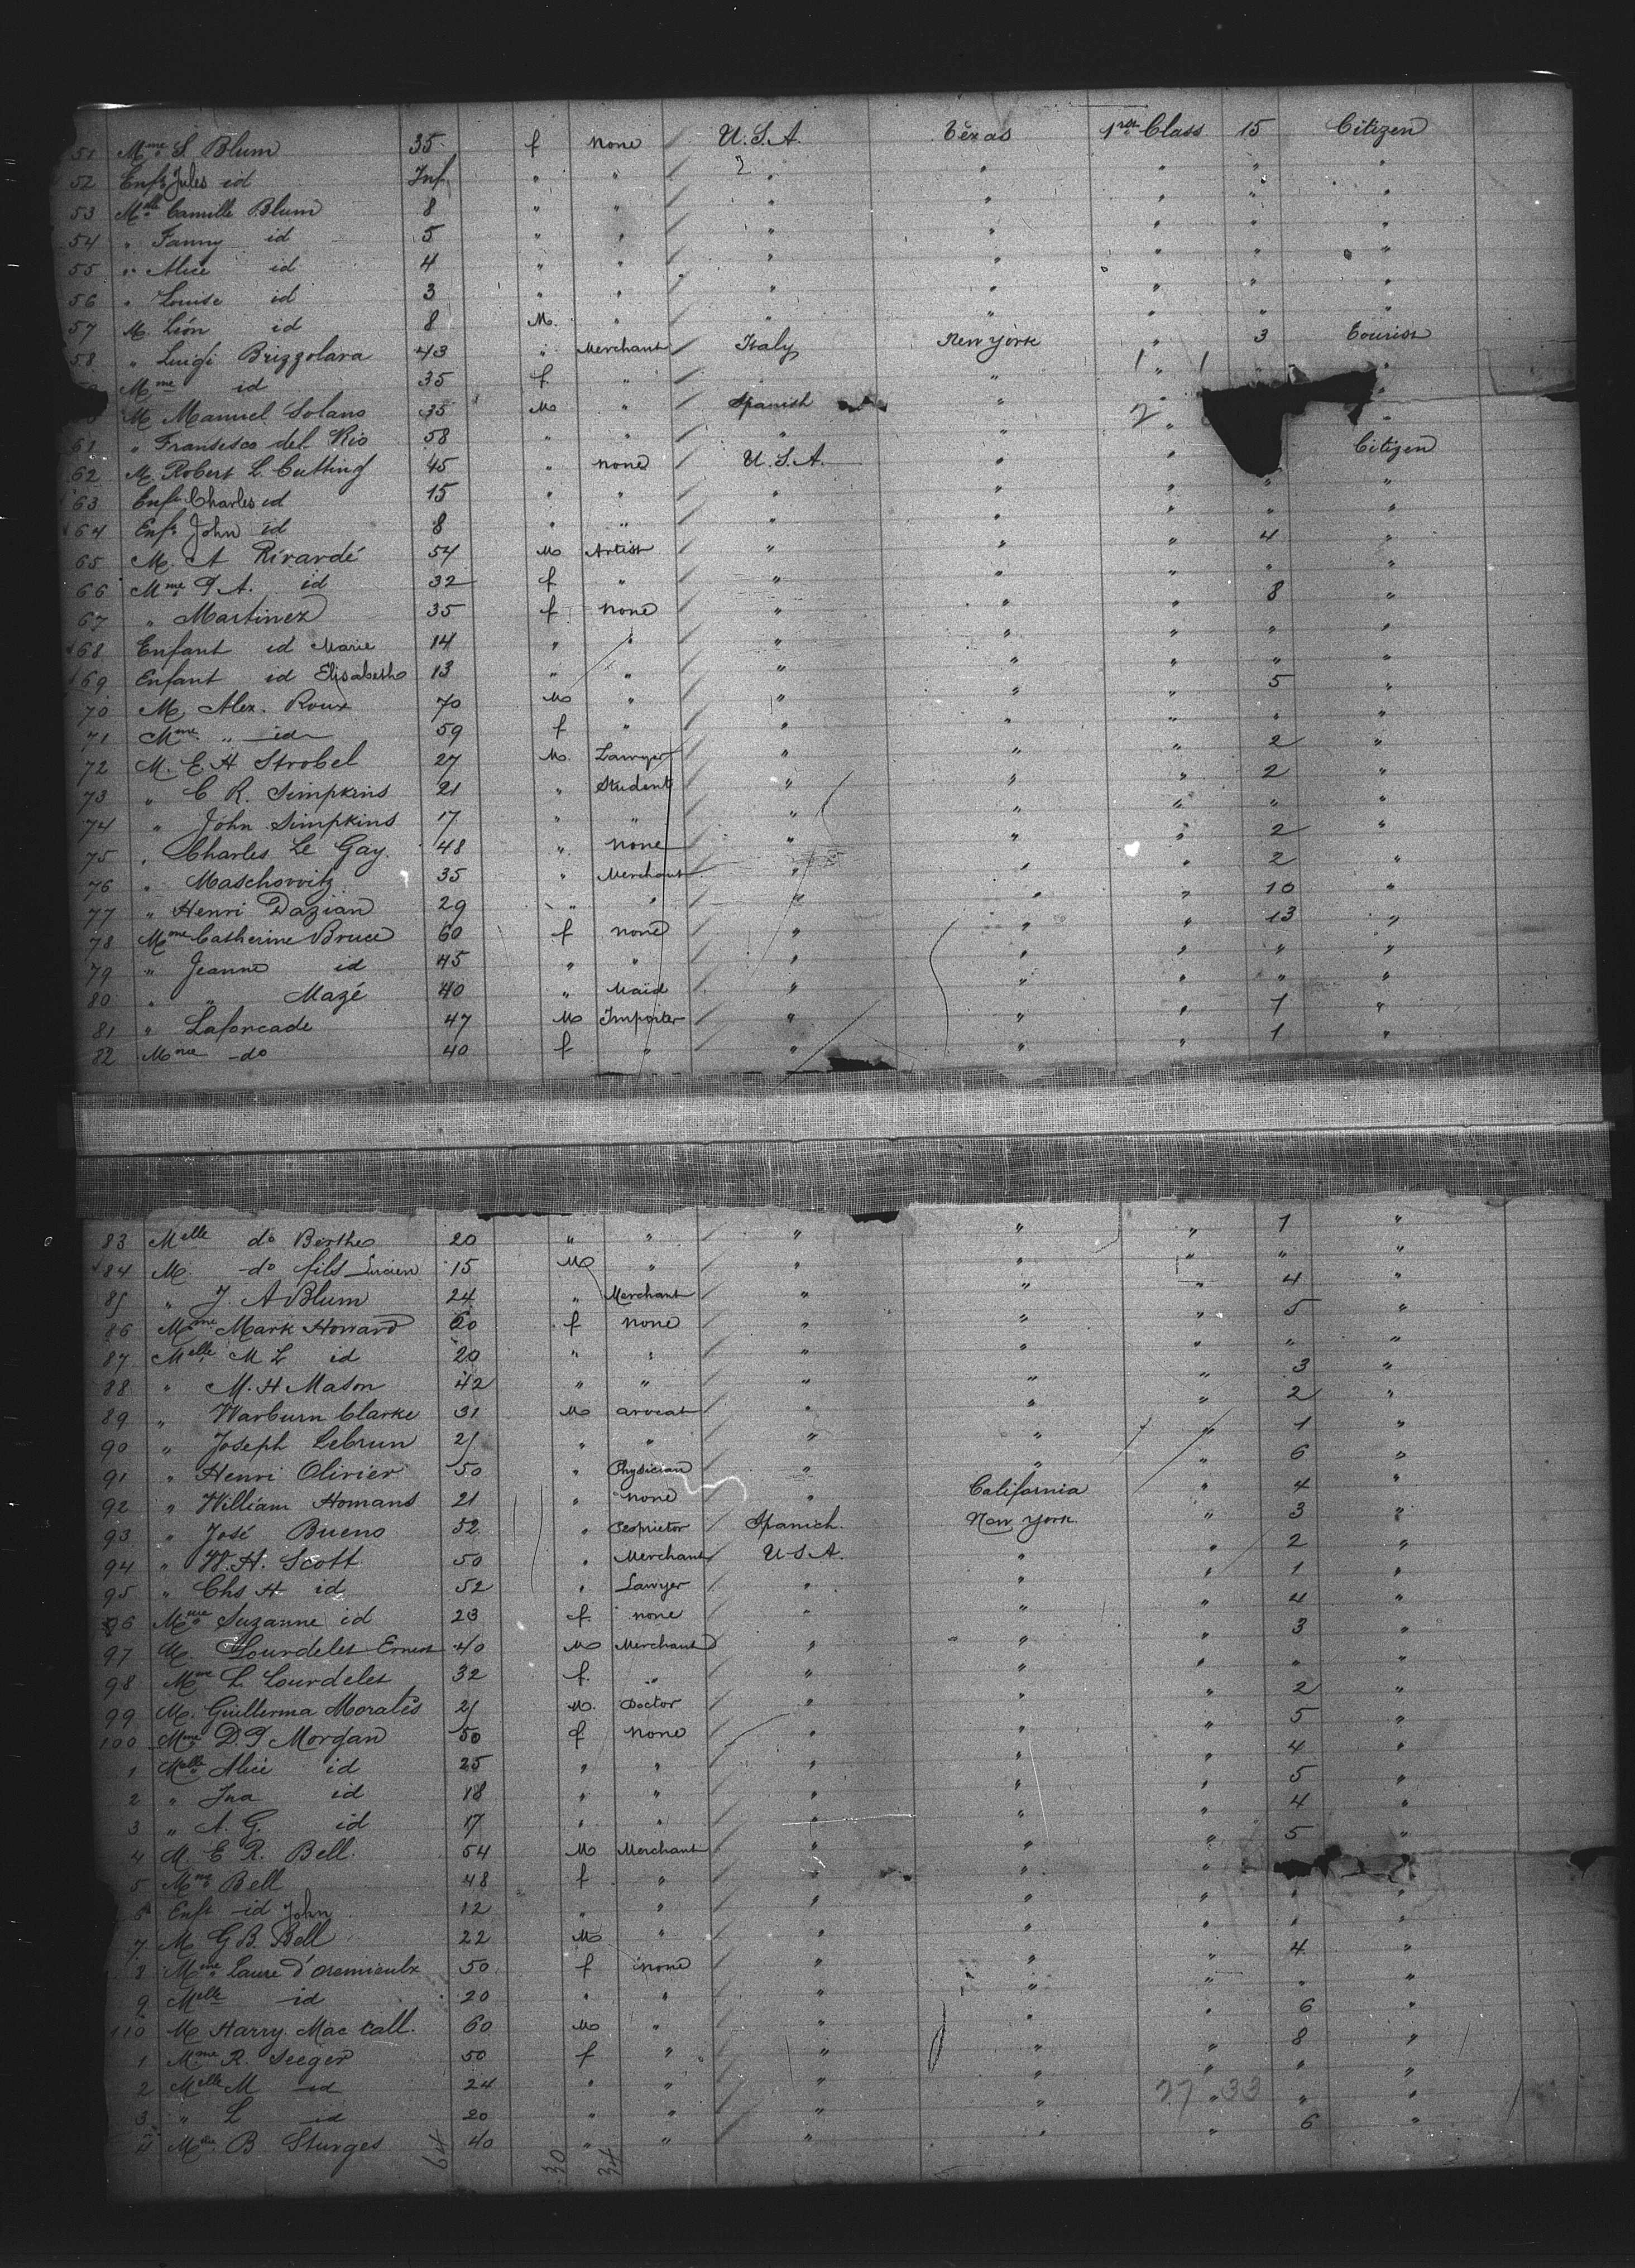 51 Mme S Blum 35 f None U.S.A. Texas 1re Class 15 Citizen
52 Enft Jules id Inf " " " " " " "
53 Melle Camille Blum 8 " " " " " " "
54 " Fanny id 5 " " " " " " "
55 " Alice id 4 " " " " " " "
56 " Louise id 3 " " " " " " "
57 M. Léon id 8 M. " " " " " "
58 " Luigi Brizzolara 43 " Merchant Italy New York " 3 Tourist
Mme id 35 f " " " "
M Manuel Solano 35 M " Spanish " " "
61 " Fransesco del Rio 58 " " " " " "
62 M. Robert L. Cutting 45 " none U.S.A. " " Citizen
63 Enft Charles id 15 " " " " " " "
64 Enft John id 8 " " " " " " "
65 M. A Rivardé 54 M Artist " " " 4 "
66 Mme P A. id 32 f " " " " " "
67 " Martinez 35 f none " " " 8 "
68 Enfant id Marie 14 " " " " " " "
69 Enfant id Elisabeth 13 " " " " " " "
70 M Alex. Roux 70 M " " " " 5 "
71 Mme " id 59 f " " " " " "
72 M. E. H Strobel 27 M. Lawyer " " " 2 "
73 " C R. Simpkins 21 " Student " " " 2 "
74 " John Simpkins 17 " " " " " " "
75 " Charles Le Gay. 48 " none " " " 2 "
76 " Maschowitz 35 " Merchant " " " 2 "
77 " Henri Dazian 29 " " " " " 10 "
78 Mme Catherine Bruce 60 f none " " " 13 "
79 " Jeanne id 45 " " " " " " "
80 " " Mazé 40 " Maid " " " " "
81 " Laforcade 47 M Importer " " " 1 "
82 Mme do 40 f " " " " 1 "
83 Melle do Berthe 20 " " " " " 1 "
84 M. do fils Lucien 15 M " " " " " "
85 " J. A Blum 24 " Merchant " " " 4 "
86 Mme Mark Howard 60 f none " " " 5 "
87 Melle M L id 20 " " " " " " "
88 " M. H Mason 42 " " " " " 3 "
89 " Warburn Clarke 31 M avocat " " " 2 "
90 " Joseph Lebrun 25 " " " " " 1 "
91 " Henri Olivier 50 " Physician " " " 6 "
92 " William Homans 21 " none " California " 4 "
93 " José Bueno 52 " Proprietor Spanich. New York " 3 "
94 " W. H. Scott 50 " Merchant U.S.A. " " 2 "
95 " Chs H id 52 " Lawyer " " " 1 "
96 Mme Suzanne id 23 f. none " " " 4 "
97 M. Lourdelet Ernest 40 M Merchand " " " 3 "
98 Mme L. Lourdelet 32 f. " " " " " "
99 M. Guillerma Moralès 25 M. Doctor " " " 2 "
100 Mme D. P Morgan 50 f none " " " 5 "
1 Melle Alice id 25 " " " " " 4 "
2 " Ina id 18 " " " " " 5 "
3 " A. G. id 17 " " " " " 4 "
4 M. E R. Bell. 54 M Merchant " " " 5 "
5 Mme Bell 48 f " " " "
6 Enft id John 12 " " " " " " "
7 M G B. Bell 22 M " " " " " "
8 Mme Laure d'Oremieulx 50 f none " " " 4 "
9 Melle id 20 " " " " " " "
110 M Harry Mac Call. 60 M " " " " 6 "
1 Mme R. Seeger 50 f " " " " 8 "
2 Melle M id 24 " " " " " " "
3 " L id 20 " " " " 27 " 33 " "
4 B Sturges 40 " " " " " 6 "
64 30 34